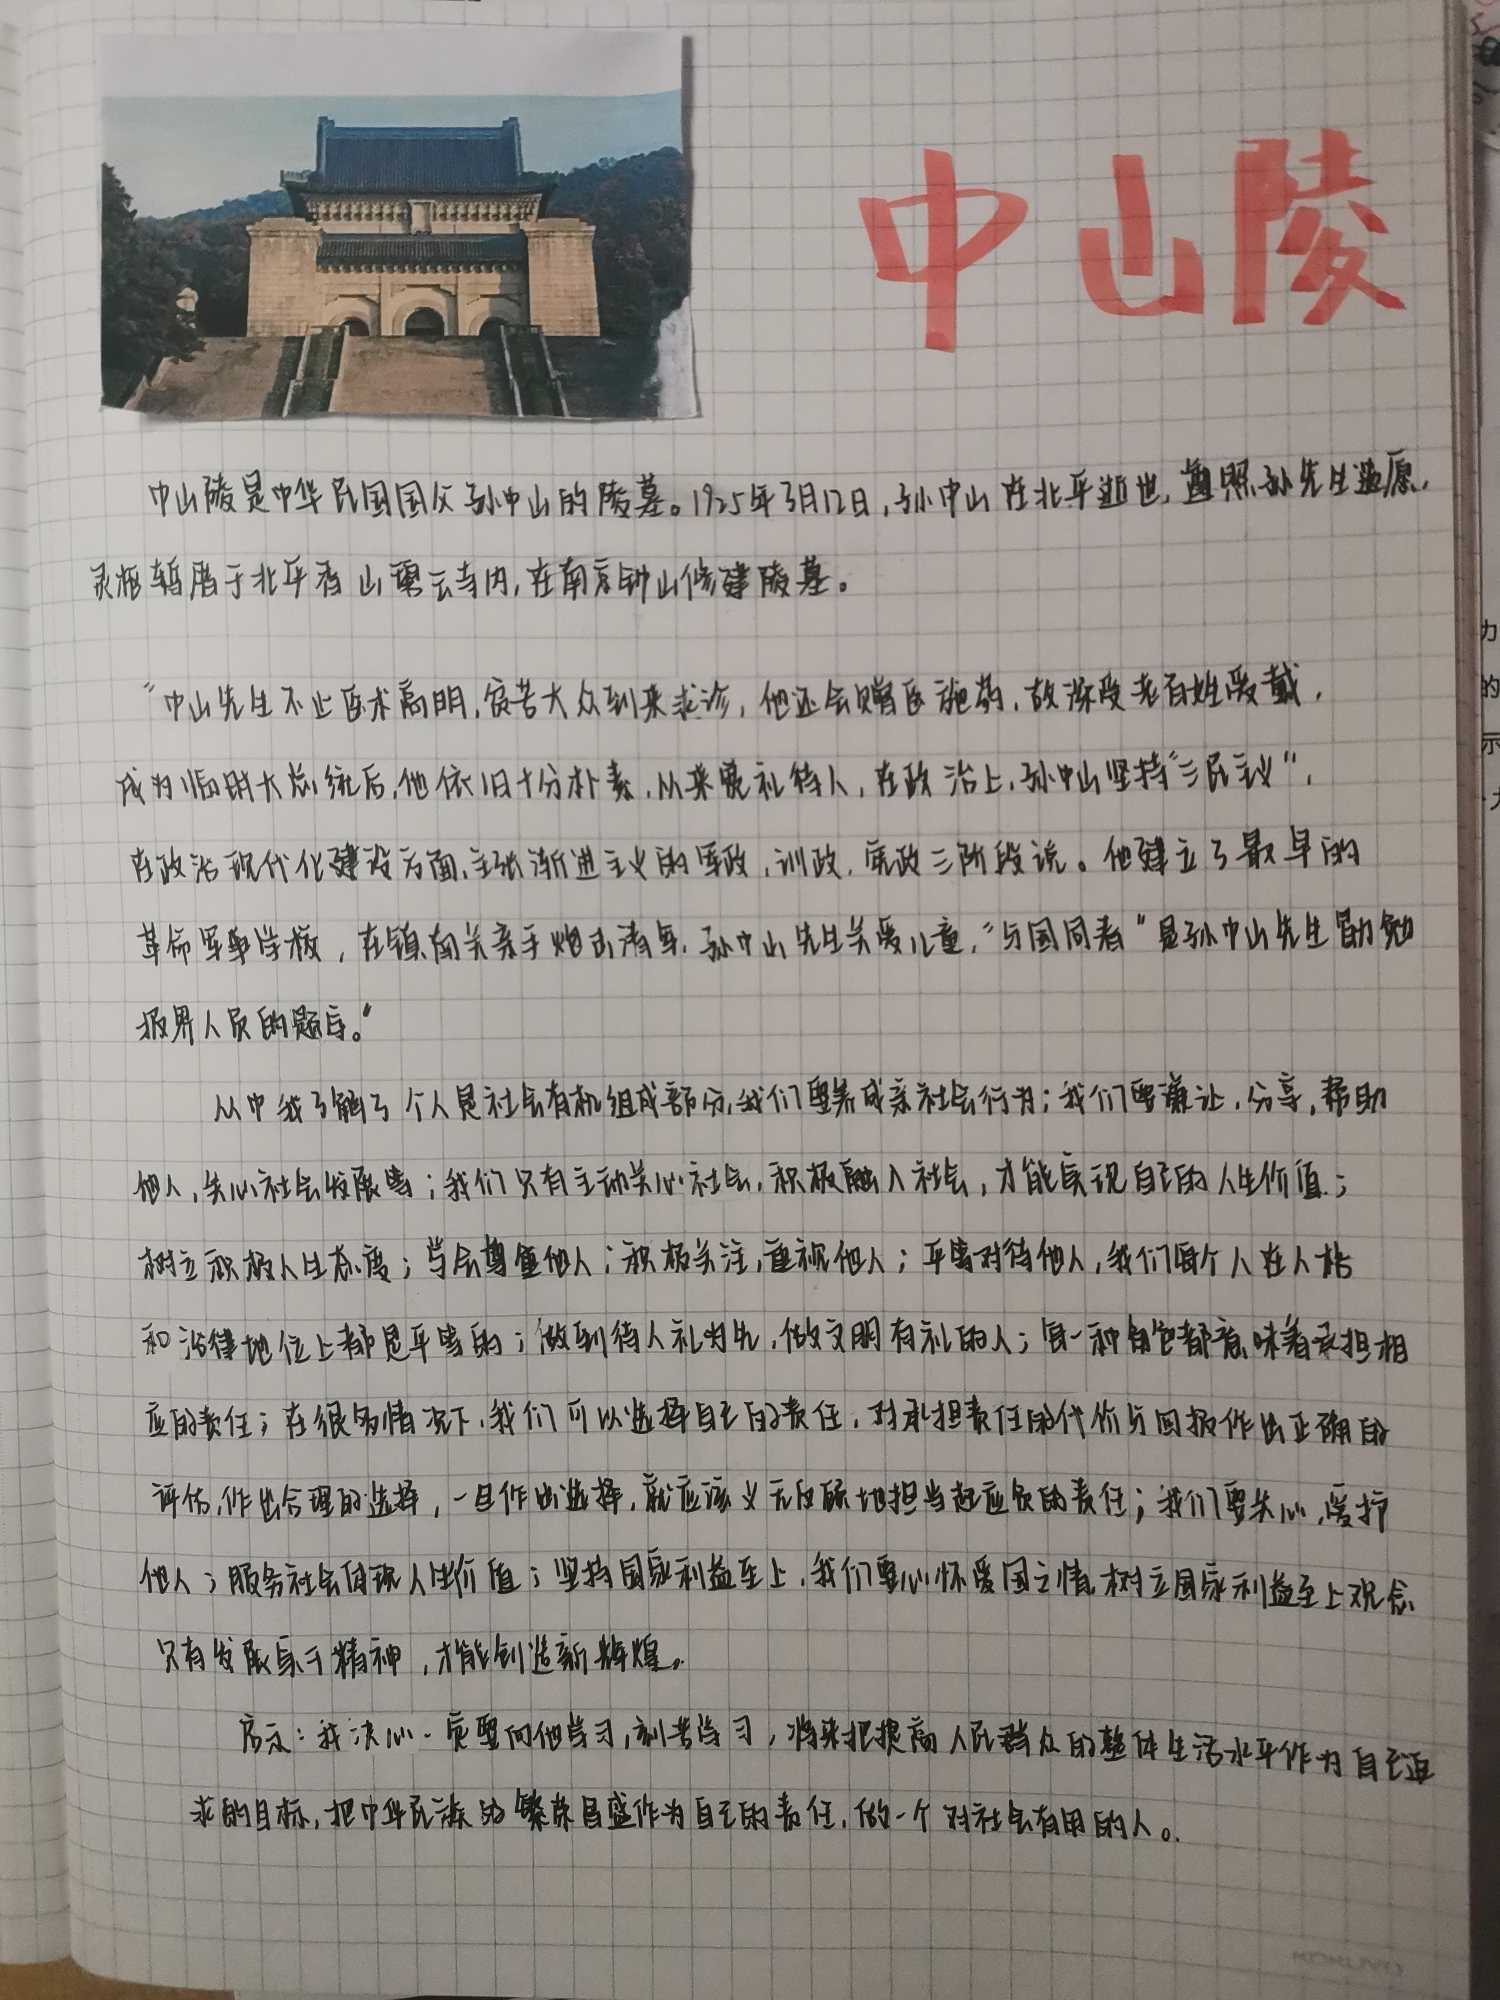 中山陵
中山陵是中华民国国父孙中山的陵墓。1925年3月12日,孙中山在北平逝世,遵照孙先生遗愿,
灵柩暂厝于北平香山碧云寺内,在南京钟山修建陵墓。
"中山先生不止医术高明,贫苦大众到来求诊,他还会赠医施药,故深受老百姓爱戴,
成为临时大总统后,他依旧十分朴素,从来宽礼待人,在政治上,孙中山坚持"三民主义",
在政治现代化建设方面,主张渐进主义的军政,训政,宪政三阶段说。他建立了最早的
革命军事学校,在镇南关亲手炮击清军,孙中山先生关爱儿童,"与国同寿"是孙中山先生勖勉
报界人员的题字。"
从中我了解了个人是社会有机组成部分,我们要养成亲社会行为;我们要谦让,分享,帮助
他人,关心社会发展等;我们只有主动关心社会,积极融入社会,才能实现自己的人生价值;
树立积极人生态度;学会尊重他人;积极关注,重视他人;平等对待他人,我们每个人在人格
和法律地位上都是平等的;做到待人礼为先,做文明有礼的人;每一种角色都意味着承担相
应的责任;在很多情况下,我们可以选择自己的责任,对承担责任的代价与回报作出正确的
评估,作出合理的选择,一旦作出选择,就应该义无反顾地担当起应负的责任;我们要关心,爱护
他人;服务社会体现人生价值;坚持国家利益至上,我们要心怀爱国之情,树立国家利益至上观念
只有发展实干精神,才能创造新辉煌。
启示:我决心一定要向他学习,刻苦学习,将来把提高人民群众的整体生活水平作为自己追
求的目标,把中华民族的繁荣昌盛作为自己的责任,做一个对社会有用的人。
KOKUYO
力
的
示